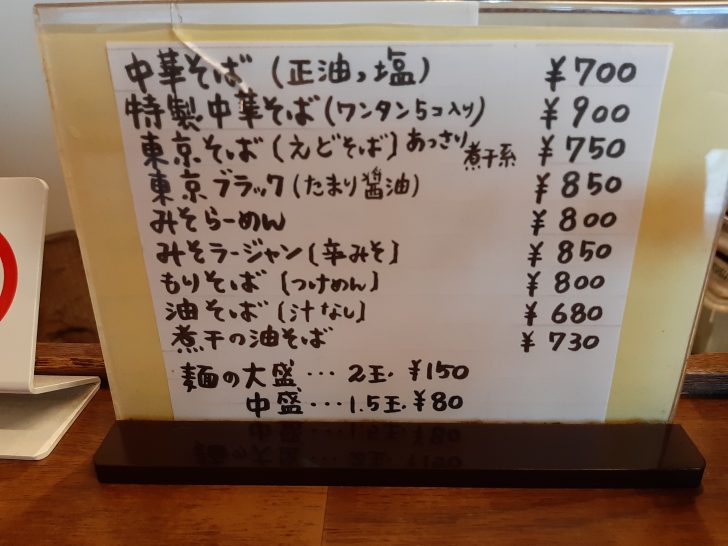 中華そば (正油、塩) ¥700
特製中華そば(ワンタン5コ入り) ¥900
東京そば(えどそば)あっさり煮干系 ¥750
東京ブラック(たまり醤油) ¥850
みそらーめん ¥800
みそラージャン[辛みそ] ¥850
もりそば [つけめん] ¥800
油そば [汁なし] ¥680
煮干の油そば ¥730
麺の大盛・・・2玉・¥150
中盛・・・1.5玉・¥80